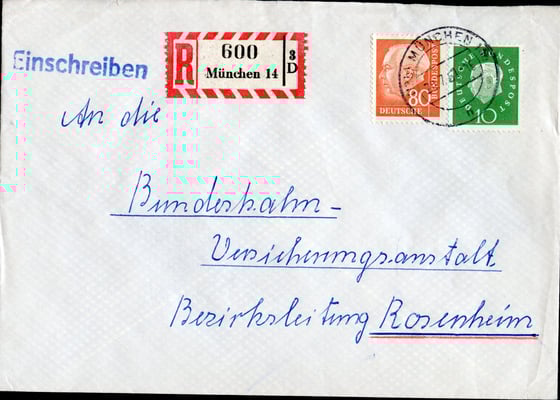 Einschreiben
R
600
München 14
3
D
MÜNCHEN
80
DEUTSCHE
BUNDESPOST
10
DEUTSCHE BUNDESPOST
An die
Bundesbahn-
Versicherungsanstalt
Bezirksleitung Rosenheim